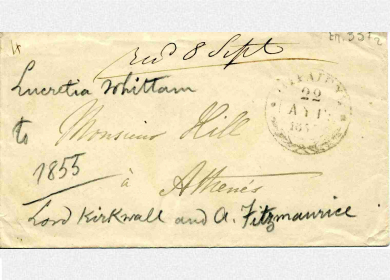 Recd 8 Sept
Lucretia Whittam
to Monsieur Hill
1855
à Athenés
Lord Kirkwall and A. Fitzmaurice
22
ΑΥΓ.